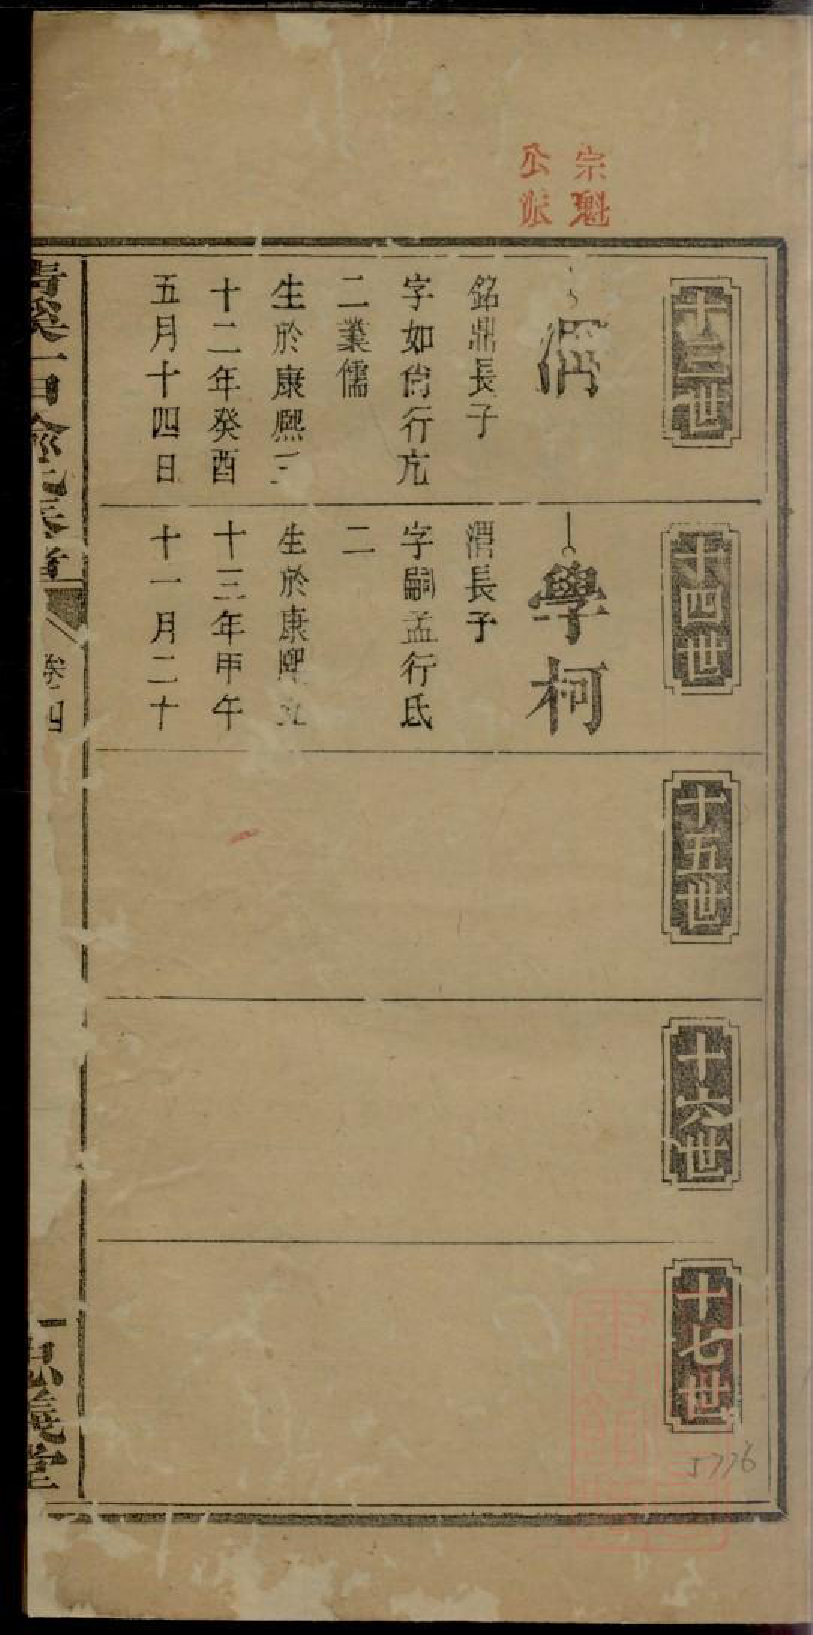 宗魁
公派
十三世
渭
銘鼎長子
字如尙行亢
二業儒
生於康熙三
十二年癸酉
五月十四日
十四世
學柯
渭長子
字嗣孟行氐
二
生於康熙五
十三年甲午
十一月二十
十五世
十六世
十七世
5776
卷四
忠義堂